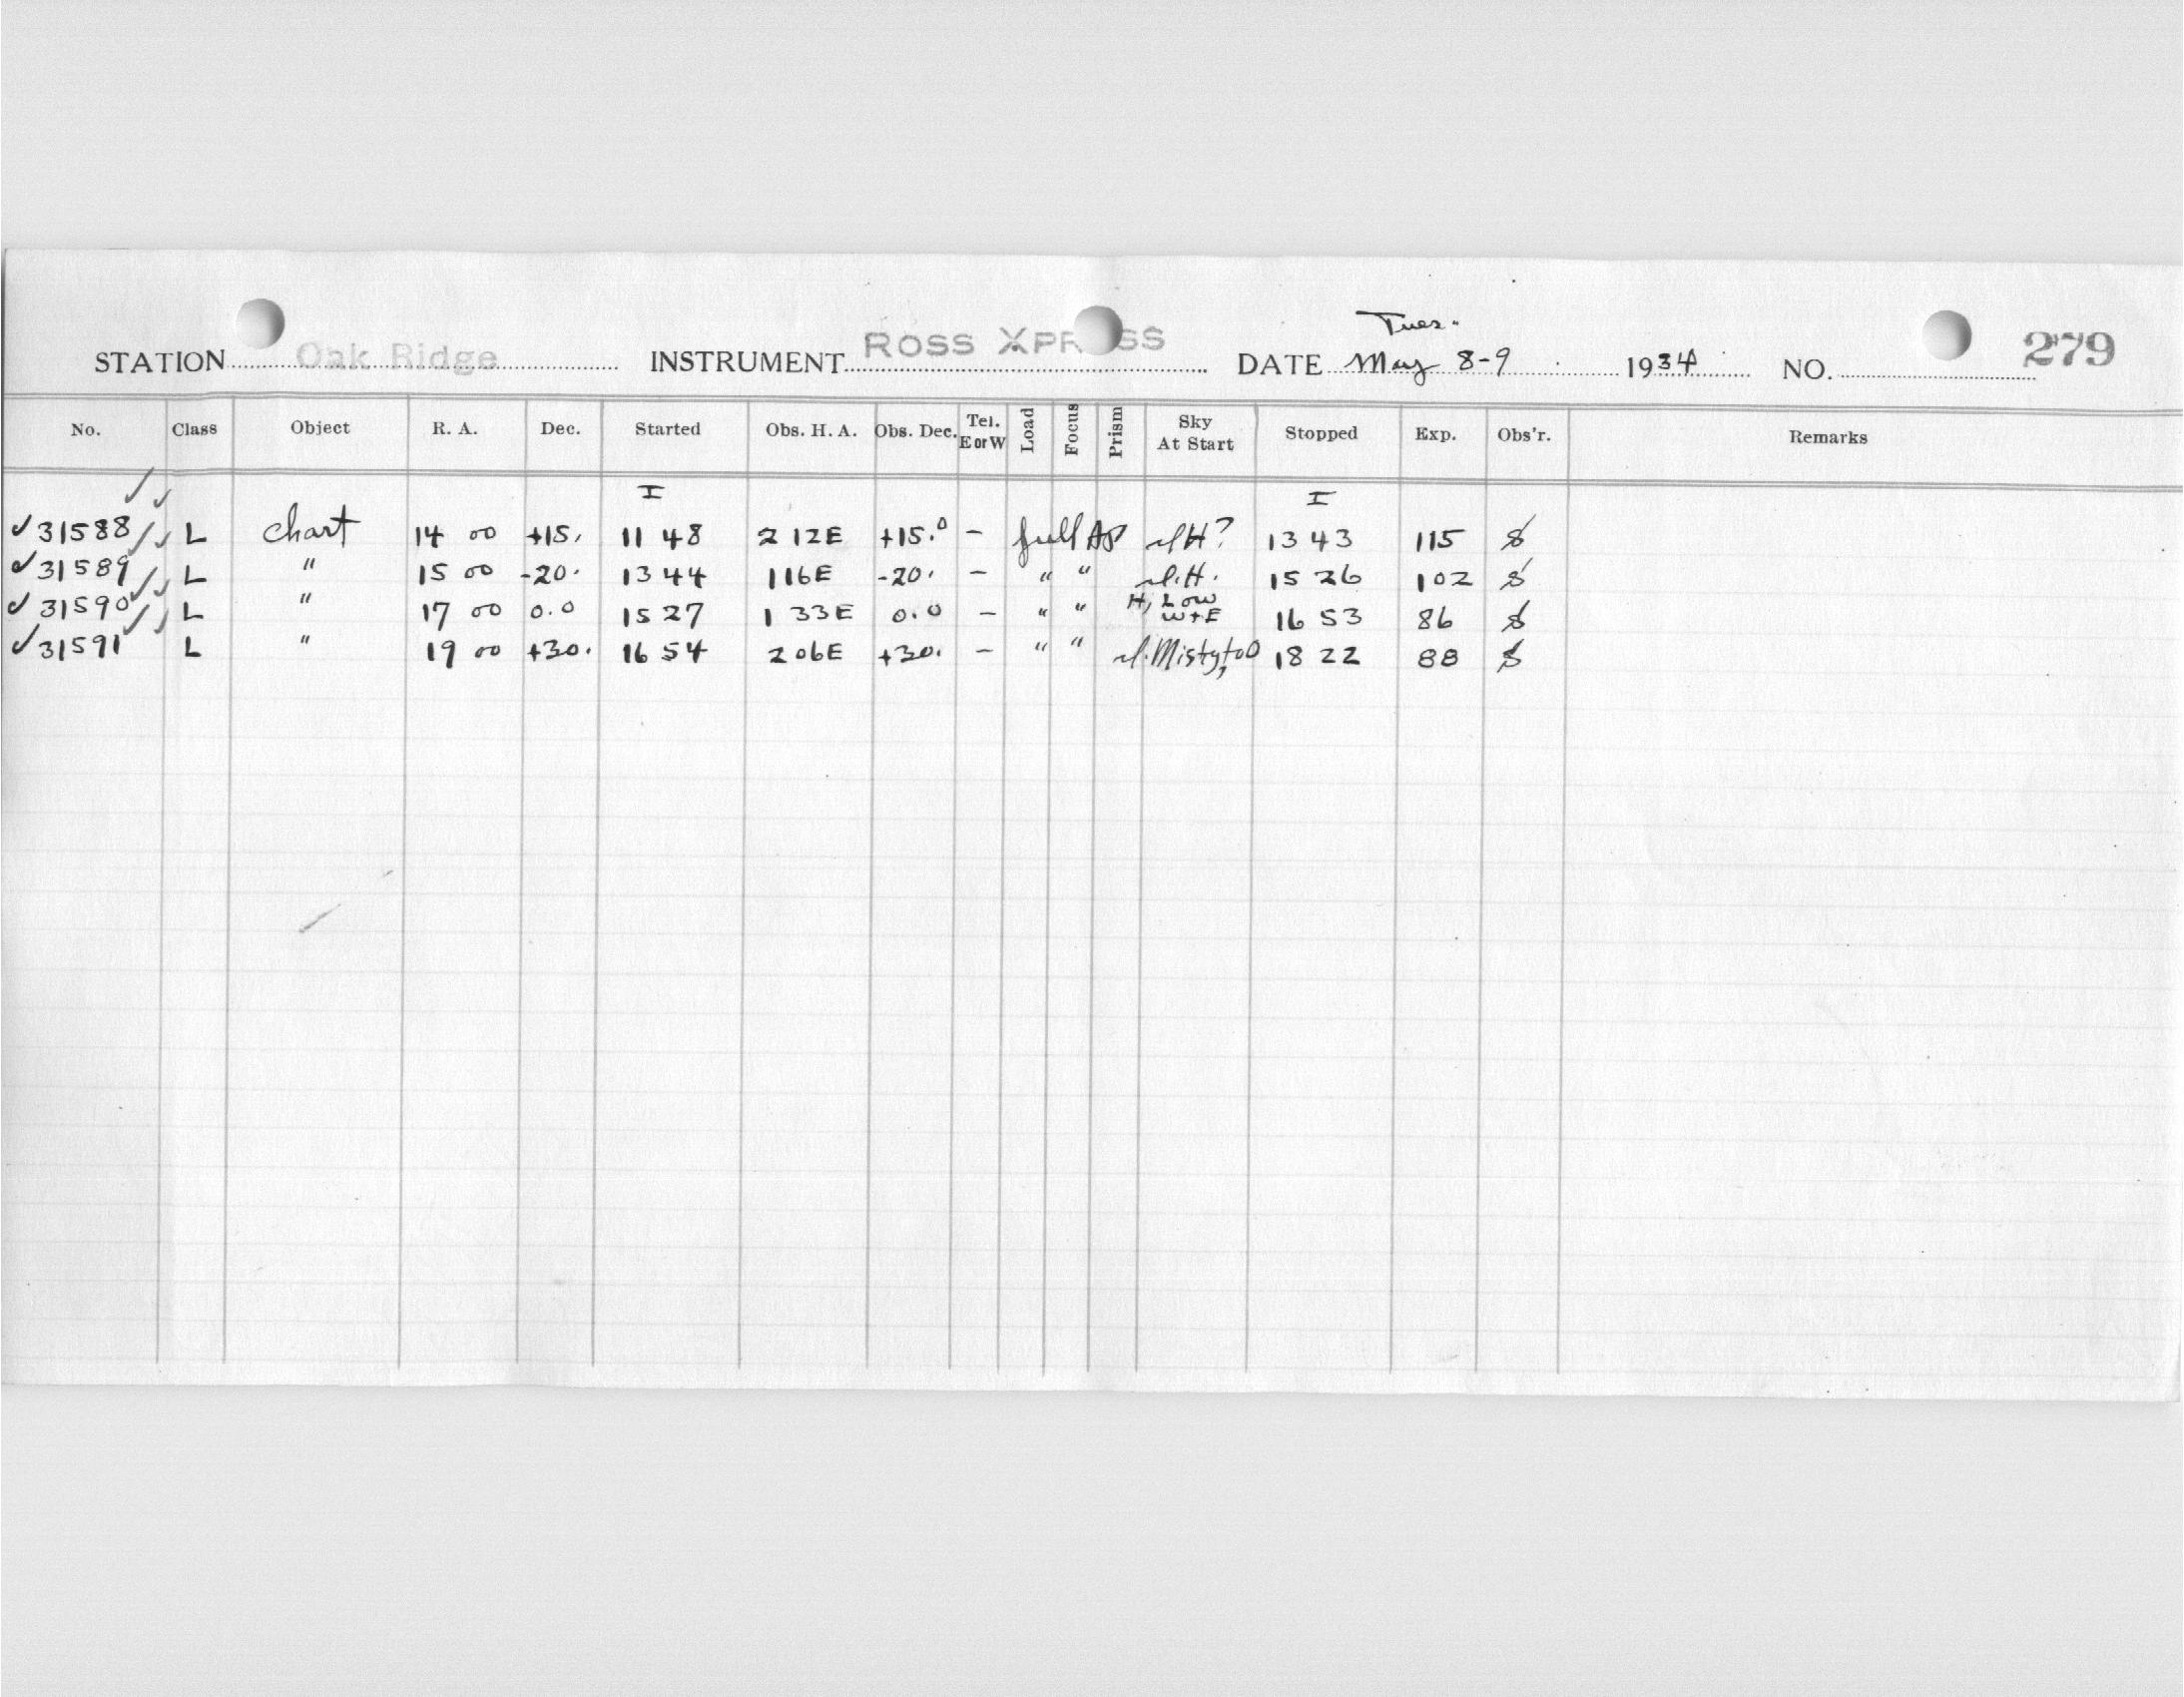 Tues.
STATION Oak Ridge INSTRUMENT ROSS XPRESS DATE May 8-9 1934 NO. 279
No. Class Object R. A. Dec. Started Obs. H. A. Obs. Dec. Tel. E or W Load Focus Prism Sky At Start Stopped Exp. Obs'r. Remarks
I I
31588 L chart 14 00 +15. 11 48 2 12E +15.0 - full AP cl H? 13 43 115 S
31589 L " 15 00 -20. 13 44 1 16E -20. - " " cl. H. 15 26 102 S
31590 L " 17 00 0.0 15 27 1 33E 0.0 - " " H, Low W+E 16 53 86 S
31591 L " 19 00 +30. 16 54 2 06E +30. - " " cl. Misty, too 18 22 88 S